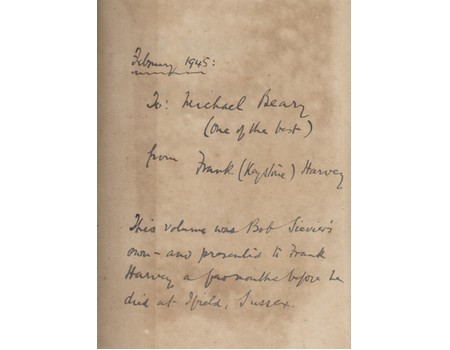 February 1945:
To: Michael Beary
(One of the best)
from Frank (Keystone) Harvey
This volume was Bob Sievier's
own – and presented to Frank
Harvey a few months before he
died at Ifield, Sussex.